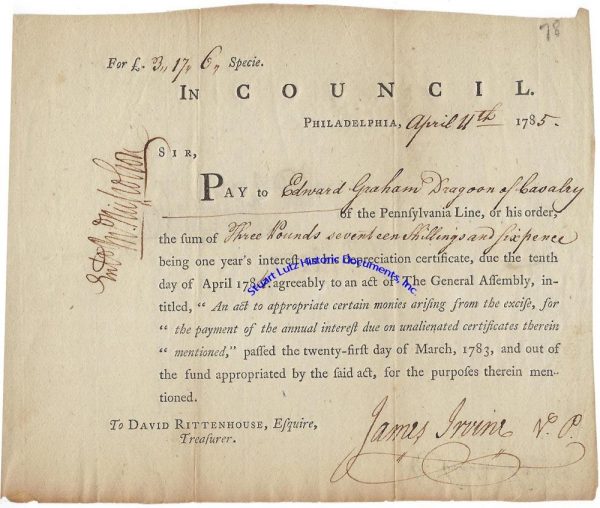 78
For £. 3,, 17,, 6,, Specie.
IN COUNCIL.
PHILADELPHIA, April 11th 1785.
SIR,
PAY to Edward Graham Dragoon of Cavalry
of the Pennsylvania Line, or his order,
the sum of Three Pounds seventeen Shillings and sixpence
being one year's interest depreciation certificate, due the tenth
day of April 178 agreeably to an act of The General Assembly, in-
titled, “ An act to appropriate certain monies arising from the excise, for
“ the payment of the annual interest due on unalienated certificates therein
“ mentioned,” passed the twenty-first day of March, 1783, and out of
the fund appropriated by the said act, for the purposes therein men-
tioned.
To DAVID RITTENHOUSE, Esquire,
Treasurer.
James Irvine V. P.
Jno Nicholson
Stuart Lutz Historic Documents, Inc.